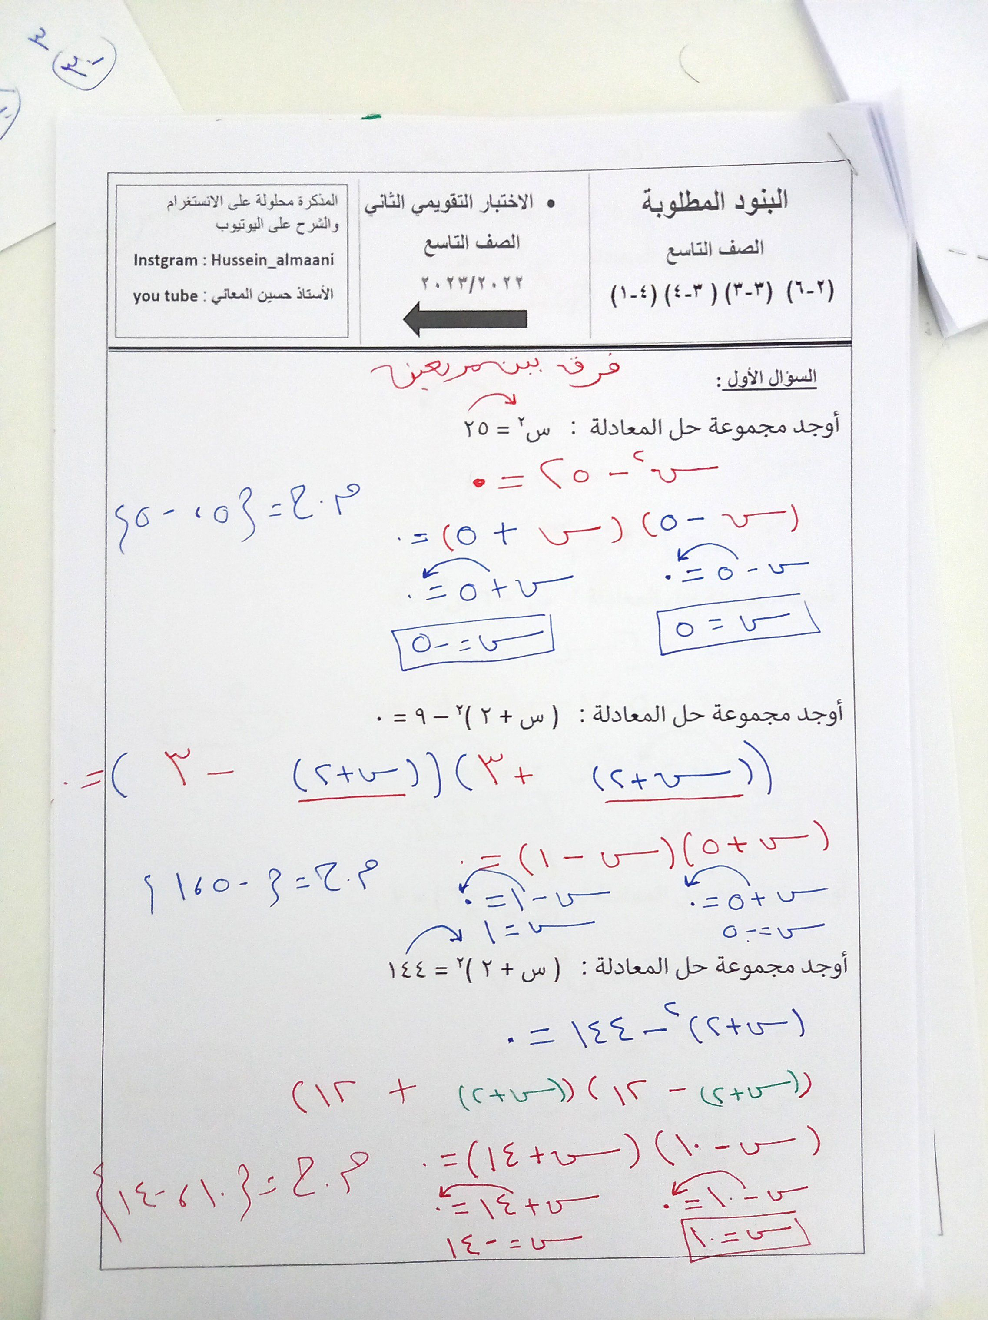 البنود المطلوبة
الصف التاسع
(٢-٦) (٣-٣) (٣-٤) (٤-١)
• الاختبار التقويمي الثاني
الصف التاسع
٢٠٢٣/٢٠٢٢
المذكرة محلولة على الانستغرام
والشرح على اليوتيوب
Instgram : Hussein_almaani
you tube : الأستاذ حسين المعاني
فرق بين مربعين
السؤال الأول :
أوجد مجموعة حل المعادلة : س² = ٢٥
س² − ٢٥ = ٠
(س − ٥) (س + ٥) = ٠
م.ح = {٥ ، −٥}
س − ٥ = ٠ س + ٥ = ٠
س = ٥ س = −٥
أوجد مجموعة حل المعادلة : (س + ٢)² − ٩ = ٠
((س+٢) + ٣) ((س+٢) − ٣) = ٠
(س + ٥) (س − ١) = ٠
م.ح = {−٥ ، ١}
س + ٥ = ٠ س − ١ = ٠
س = −٥ س = ١
أوجد مجموعة حل المعادلة : (س + ٢)² = ١٤٤
(س+٢)² − ١٤٤ = ٠
((س+٢) − ١٢) ((س+٢) + ١٢)
(س − ١٠) (س + ١٤) = ٠
م.ح = {١٠ ، −١٤}
س − ١٠ = ٠ س + ١٤ = ٠
س = ١٠ س = −١٤